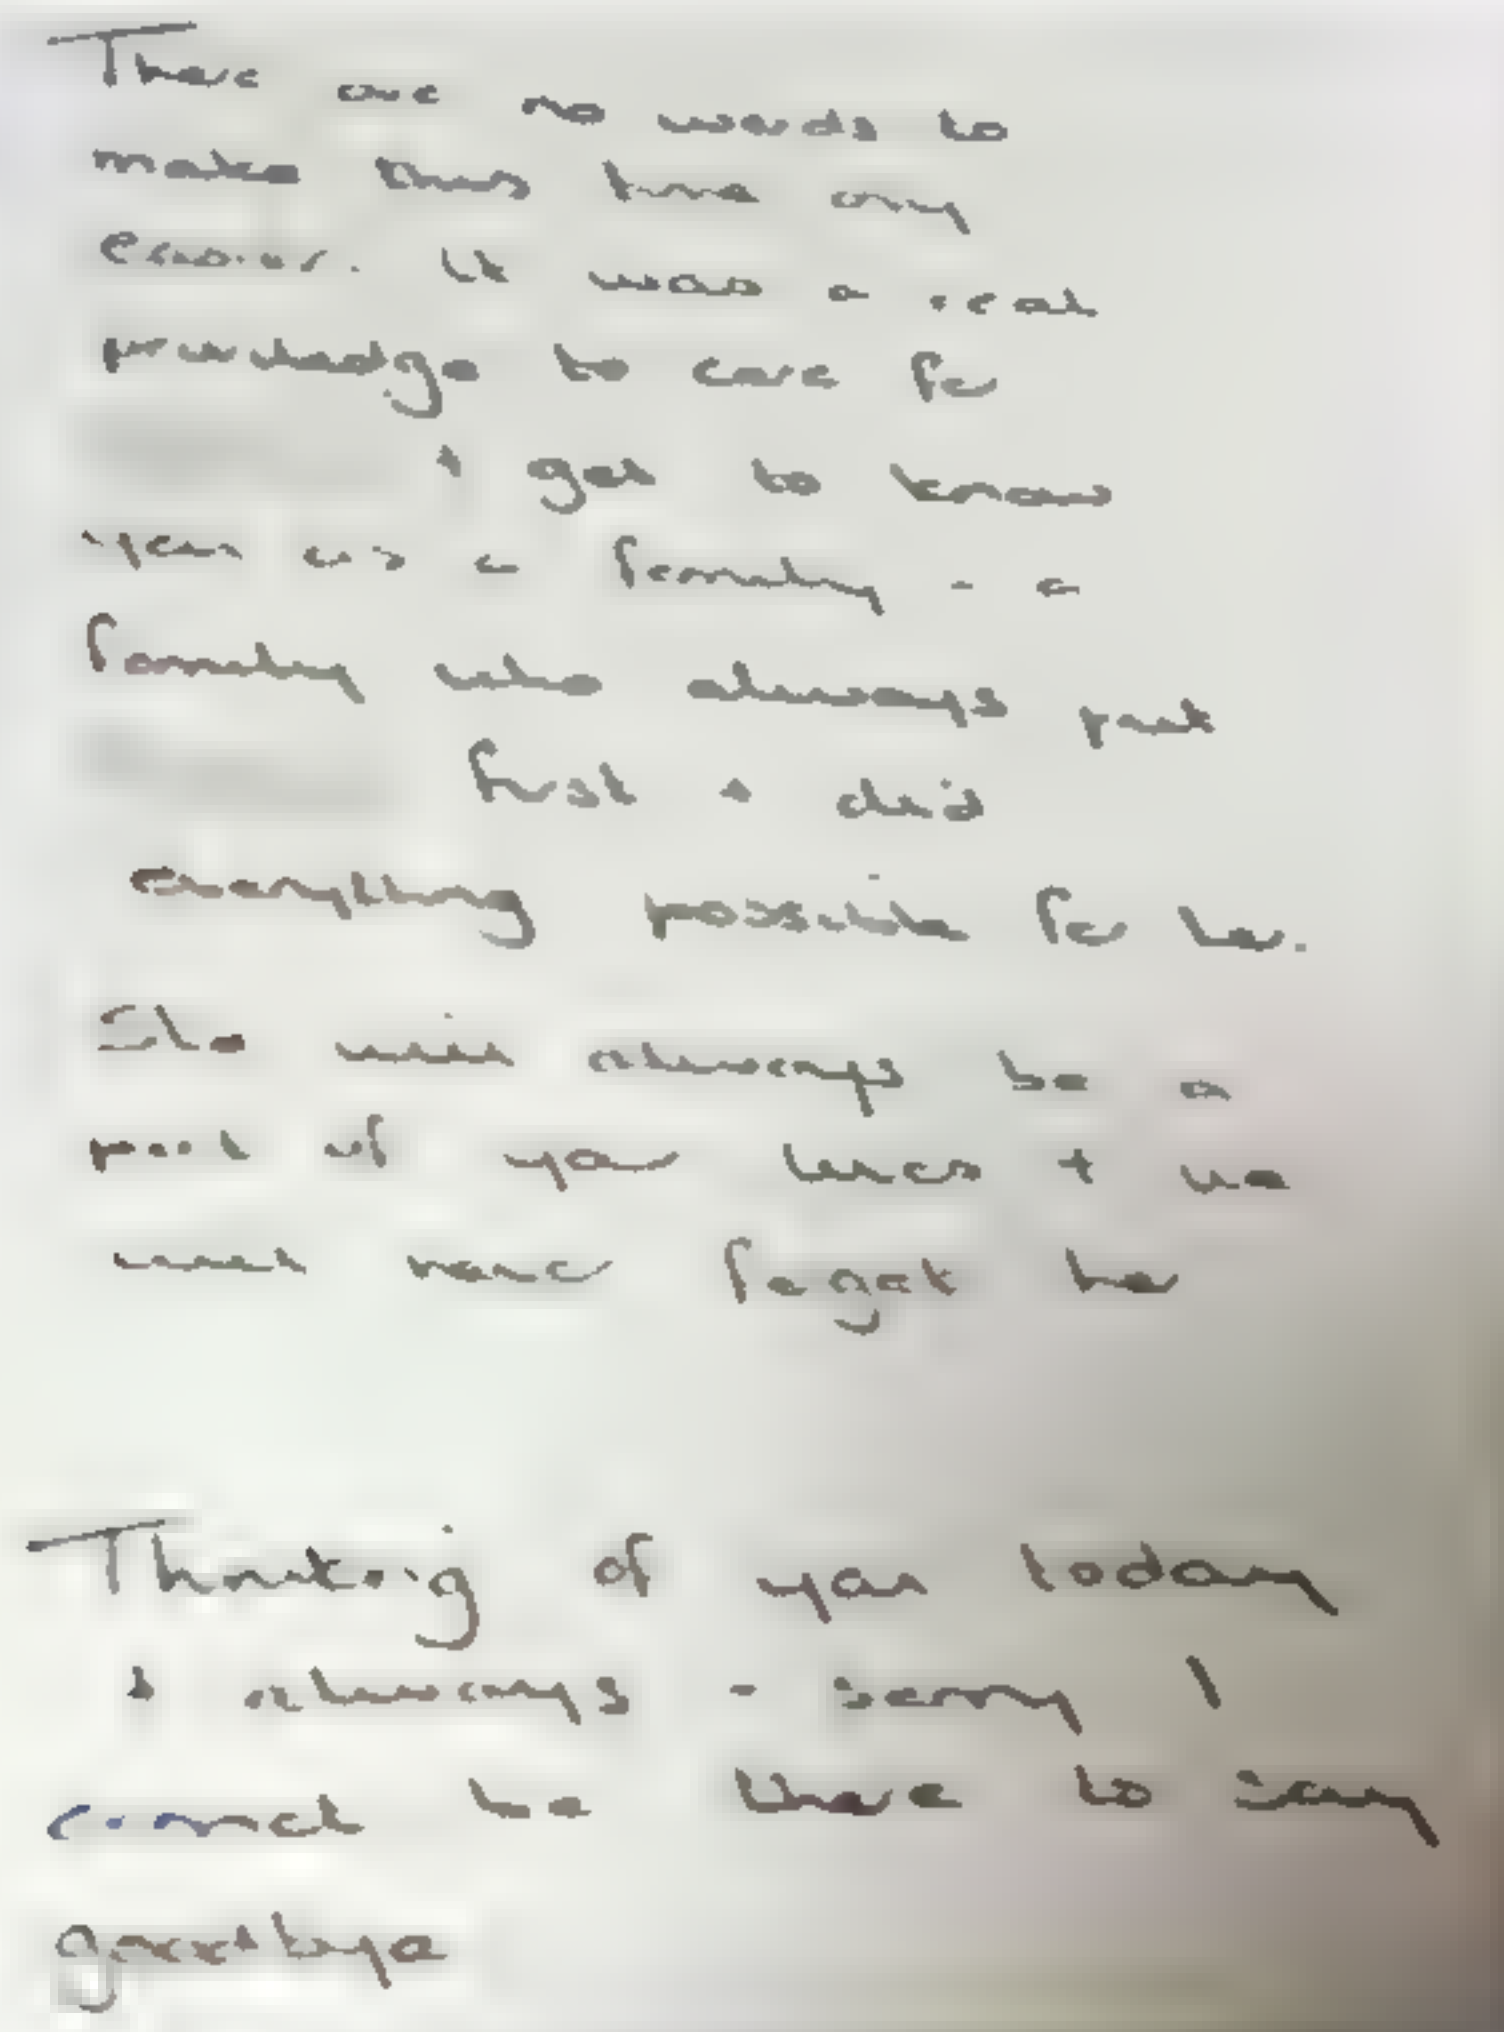 There are no words to
make this time any
easier. It was a real
priviledge to care for
+ get to know
you as a family - a
family who always put
first + did
everything possible for her.
She will always be a
part of your lives + we
will never forget her
Thinking of you today
+ always - sorry I
cannot be there to say
goodbye